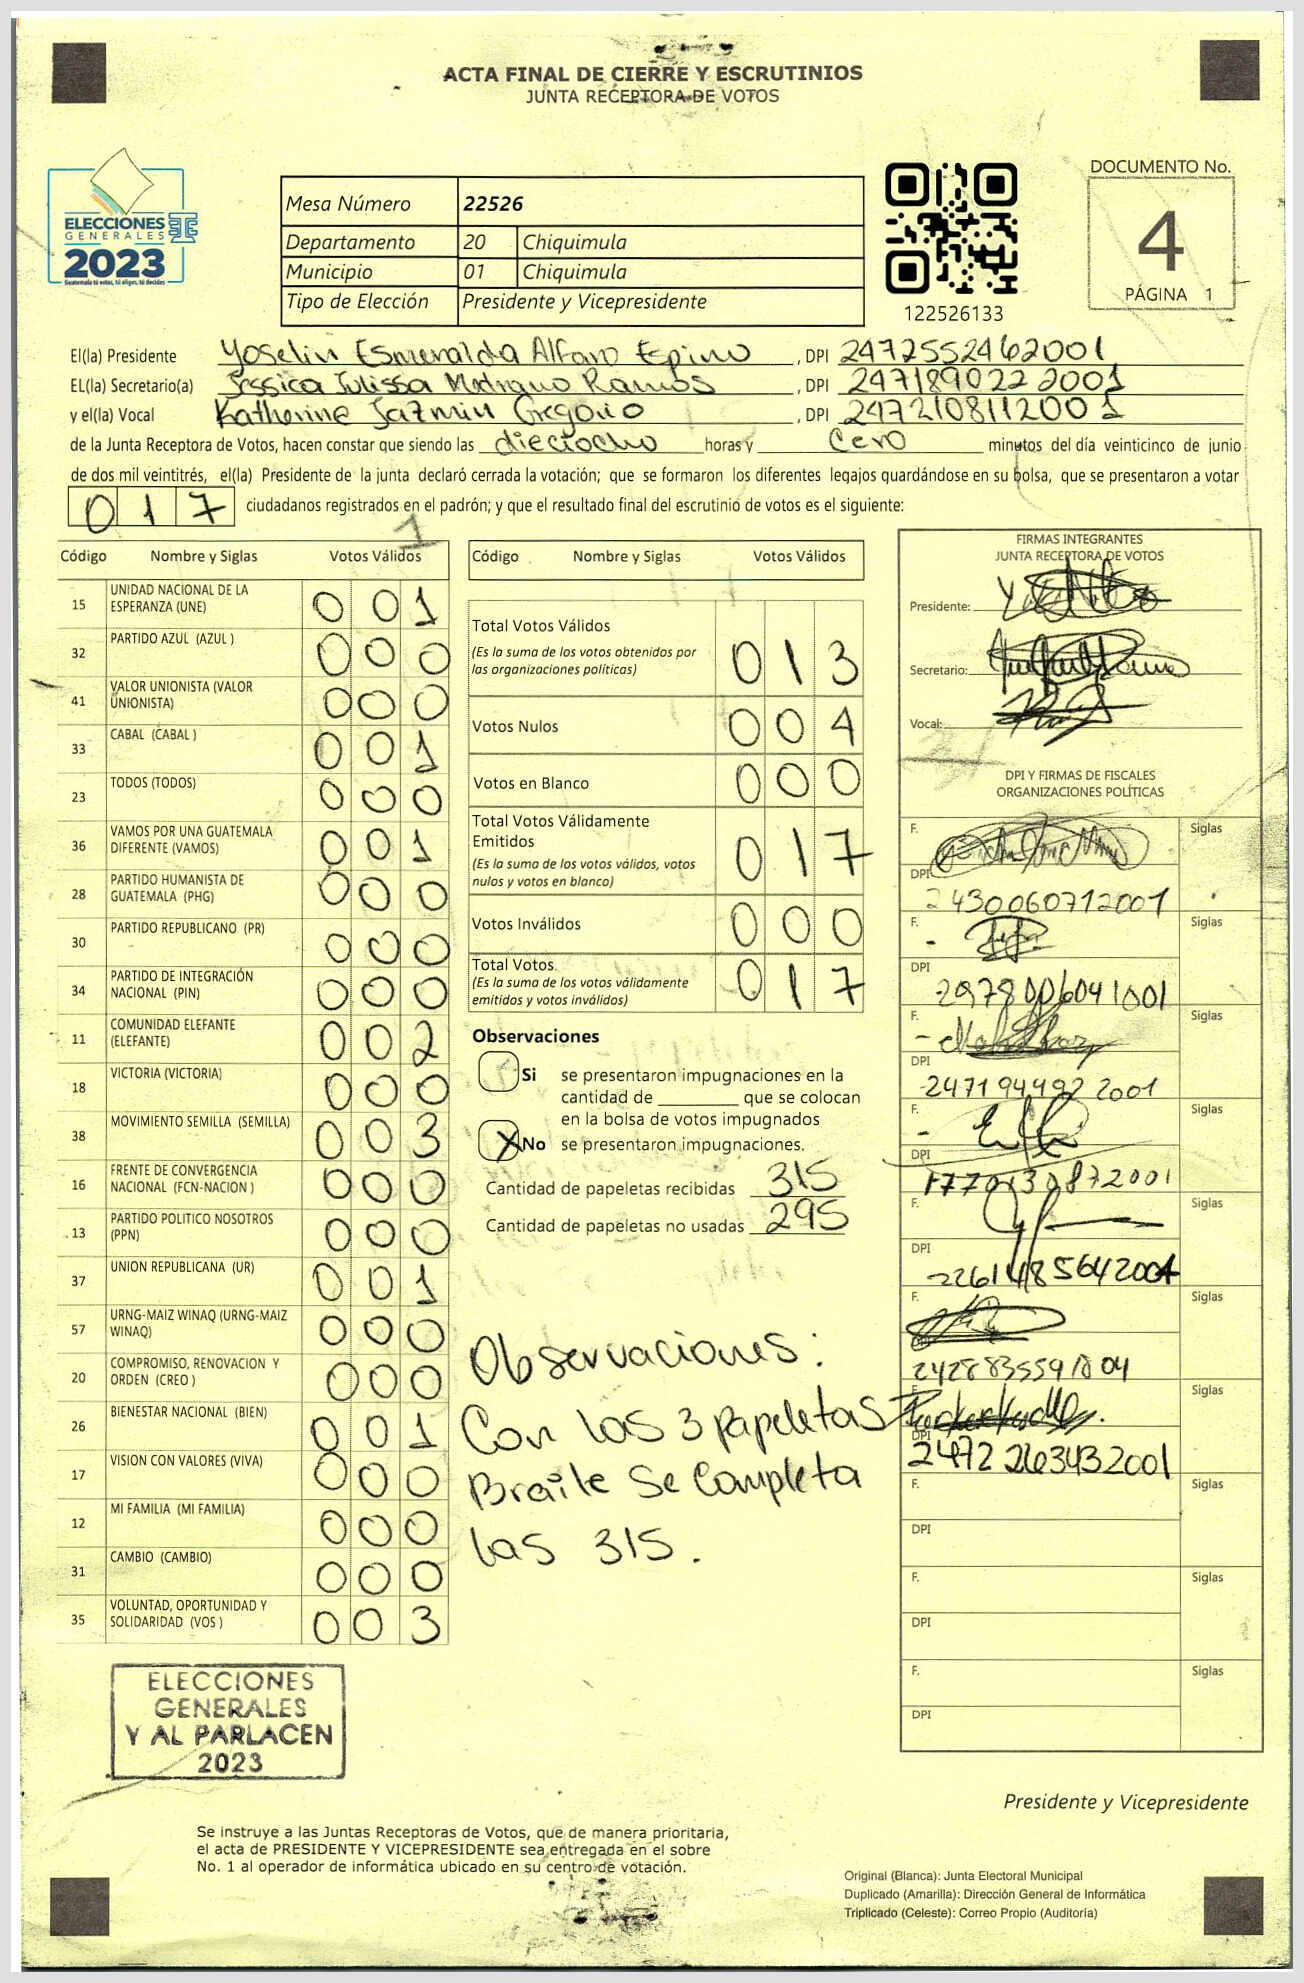 ACTA FINAL DE CIERRE Y ESCRUTINIOS
JUNTA RECEPTORA DE VOTOS
ELECCIONES
GENERALES
2023
Guatemala tú votas, tú eliges, tú decides
Mesa Número 22526
Departamento 20 Chiquimula
Municipio 01 Chiquimula
Tipo de Elección Presidente y Vicepresidente
122526133
DOCUMENTO No.
4
PÁGINA 1
El(la) Presidente Yoselin Esmeralda Alfaro Espino, DPI 2472552462001
EL(la) Secretario(a) Jessica Julissa Ramos, DPI 2471890222001
y el(la) Vocal Katherine Jazmin Gregorio, DPI 2472108112001
de la Junta Receptora de Votos, hacen constar que siendo las dieciocho horas y Cero minutos del día veinticinco de junio
de dos mil veintitrés, el(la) Presidente de la junta declaró cerrada la votación; que se formaron los diferentes legajos guardándose en su bolsa, que se presentaron a votar
017 ciudadanos registrados en el padrón; y que el resultado final del escrutinio de votos es el siguiente:
Código Nombre y Siglas Votos Válidos
15 UNIDAD NACIONAL DE LA ESPERANZA (UNE) 001
32 PARTIDO AZUL (AZUL ) 000
41 VALOR UNIONISTA (VALOR UNIONISTA) 000
33 CABAL (CABAL ) 001
23 TODOS (TODOS) 000
36 VAMOS POR UNA GUATEMALA DIFERENTE (VAMOS) 001
28 PARTIDO HUMANISTA DE GUATEMALA (PHG) 000
30 PARTIDO REPUBLICANO (PR) 000
34 PARTIDO DE INTEGRACIÓN NACIONAL (PIN) 000
11 COMUNIDAD ELEFANTE (ELEFANTE) 002
18 VICTORIA (VICTORIA) 000
38 MOVIMIENTO SEMILLA (SEMILLA) 003
16 FRENTE DE CONVERGENCIA NACIONAL (FCN-NACION ) 000
13 PARTIDO POLITICO NOSOTROS (PPN) 000
37 UNION REPUBLICANA (UR) 001
57 URNG-MAIZ WINAQ (URNG-MAIZ WINAQ) 000
20 COMPROMISO, RENOVACION Y ORDEN (CREO ) 000
26 BIENESTAR NACIONAL (BIEN) 001
17 VISION CON VALORES (VIVA) 000
12 MI FAMILIA (MI FAMILIA) 000
31 CAMBIO (CAMBIO) 000
35 VOLUNTAD, OPORTUNIDAD Y SOLIDARIDAD (VOS ) 003
Código Nombre y Siglas Votos Válidos
Total Votos Válidos 013
(Es la suma de los votos obtenidos por
las organizaciones políticas)
Votos Nulos 004
Votos en Blanco 000
Total Votos Válidamente
Emitidos 017
(Es la suma de los votos válidos, votos
nulos y votos en blanco)
Votos Inválidos 000
Total Votos 017
(Es la suma de los votos válidamente
emitidos y votos inválidos)
Observaciones
Si se presentaron impugnaciones en la
cantidad de ________ que se colocan
en la bolsa de votos impugnados
X No se presentaron impugnaciones.
Cantidad de papeletas recibidas 315
Cantidad de papeletas no usadas 295
Observaciones:
Con las 3 papeletas
Braile Se Completa
las 315.
FIRMAS INTEGRANTES
JUNTA RECEPTORA DE VOTOS
Presidente:
Secretario:
Vocal:
DPI Y FIRMAS DE FISCALES
ORGANIZACIONES POLÍTICAS
F. Siglas
DPI 2430060712001
F. Siglas
DPI
F. Siglas
DPI 2471944922001
F. Siglas
DPI
F. Siglas
DPI
F. Siglas
F. Siglas
DPI 2472263432001
F. Siglas
DPI
F. Siglas
DPI
F. Siglas
DPI
ELECCIONES
GENERALES
Y AL PARLACEN
2023
Presidente y Vicepresidente
Se instruye a las Juntas Receptoras de Votos, que de manera prioritaria,
el acta de PRESIDENTE Y VICEPRESIDENTE sea entregada en el sobre
No. 1 al operador de informática ubicado en su centro de votación.
Original (Blanca): Junta Electoral Municipal
Duplicado (Amarilla): Dirección General de Informática
Triplicado (Celeste): Correo Propio (Auditoría)